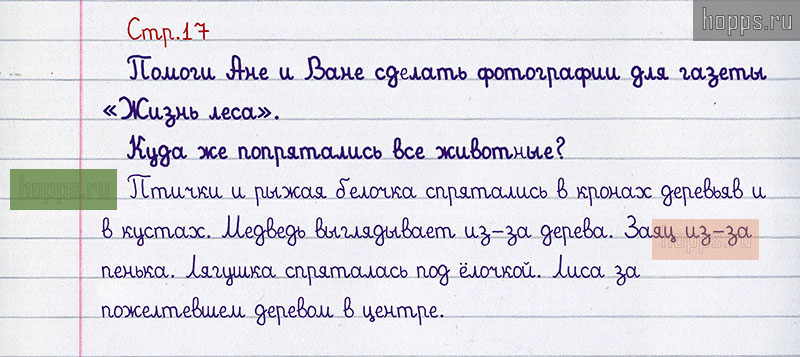 hopps.ru
Стр.17
Помоги Ане и Ване сделать фотографии для газеты
«Жизнь леса».
Куда же попрятались все животные?
hopps.ru
Птички и рыжая белочка спрятались в кронах деревьяв и
в кустах. Медведь выглядывает из-за дерева. Заяц из-за
hopps.ru
пенька. Лягушка спряталась под ёлочкой. Лиса за
пожелтевшем деревом в центре.